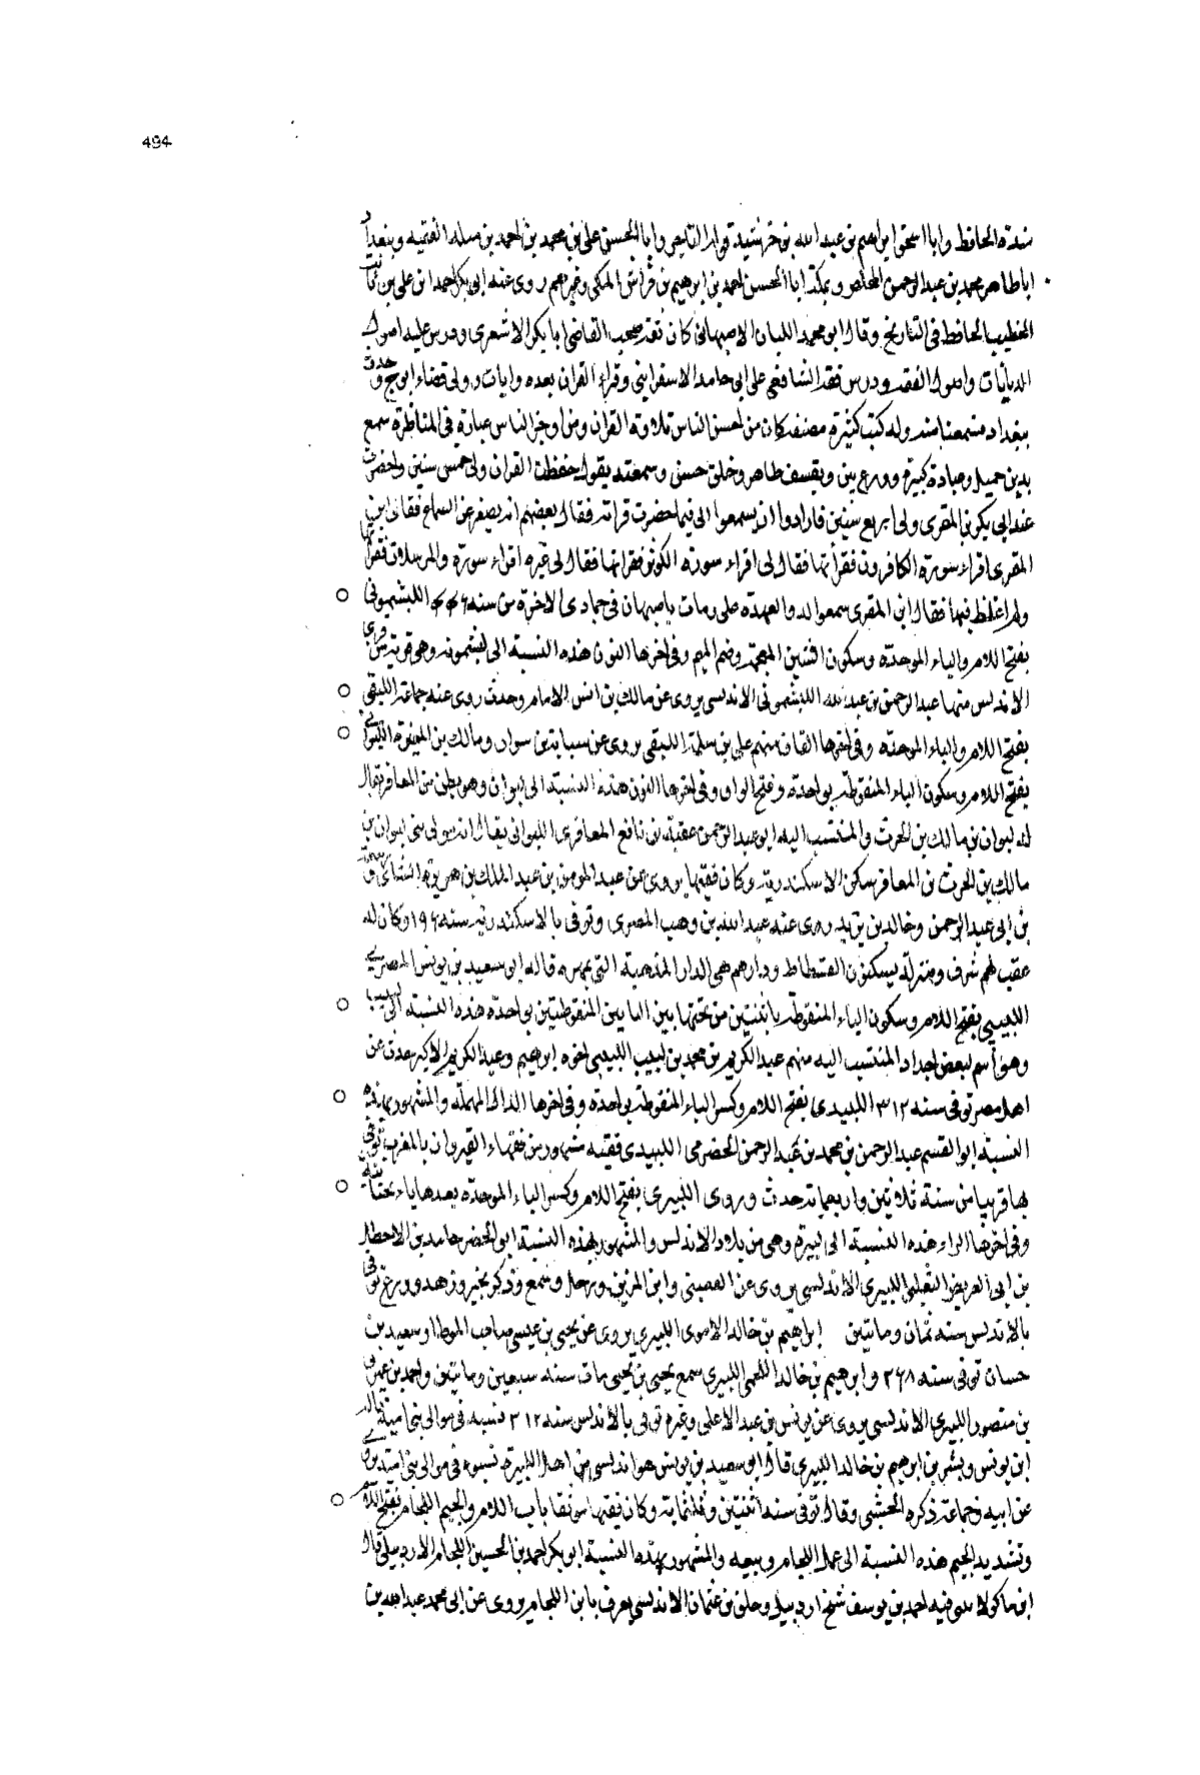 494
مندة الحافظ وابا اسحق ابراهيم بن عبد الله بن خرشيد قوله التاجر وابا الحسن على بن محمد بن احمد بن ميله الفقيه وببغداد
اباطاهر محمد بن عبد الرحمن المخلص وبمكة ابا الحسن احمد بن ابرهيم بن فراس المكى وغيرهم روى عنه ابى بكر احمد ابن على بن ثابت
الخطيب الحافظ فى التاريخ وقال ابو محمد اللبان الاصبهانى كان ثقة صحب القاضى ابا بكر الاشعرى ودرس عليه اصول
الديانات واصول الفقه ودرس فقه الشافعى على ابى حامد الاسفراينى وقراء القران بعده وايات وولى قضاء ايذج وحدث
ببغداد فسمعنا منه وله كتب كثيرة مصنفه كان من احسن الناس تلاوة القران ومن اوجز الناس عبارة فى المناظرة سمع
بدين جميل وعبادة كبيرة وورع بين وتقشف ظاهر وخلق حسن وسمعته يقول حفظت القران ولى خمس سنين واحضرت
عند ابى بكر بن المقرى ولى اربع سنين فارادوا ان يسمعوا الى فيما حضرت قراته فقال بعضهم انه يصغر عن السماع فقال ابن
المقرى اقراء سورة الكافرون فقرأتها فقال لى اقراء سورة الكوثر فقراتها فقال لى غيره اقراء سورة والمرسلات فقراتها
ولم اغلط فيها فقال ابن المقرى سمعوا له والعهدة على ومات باصبهان فى جمادى الاخرة من سنه ٤٤٦ اللبشمونى
بفتح اللام والباء الموحدة وسكون الشين المعجمة وضم الميم وفى اخرها النون هذه النسبة الى لبشمونه وهى قرية من قرى
الاندلس منها عبد الرحمن بن عبد الله اللبشمونى الاندلسى يروى عن مالك بن انس الامام وحدث روى عنه جماعة اللبقى
بفتح اللام والباء الموحدة وفى اخرها القاف منهم على بن سلمة اللبقى يروى عن سبابة بن سوار ومالك بن المغيرة اللبوانى
بفتح اللام وسكون الباء المنقوطة بواحدة وفتح الواو وفى اخرها النون هذه النسبة الى لبوان وهو بطن من المعافر يقال
له لبوان بن مالك بن الحرث والمنتسب اليه ابو عبد الرحمن عقبة بن نافع المعافرى اللبوانى يقال انه مولى بنى لبوان بن
مالك بن الحرث بن المعافر سكن الاسكندرية وكان فقيها يروى عن عبد المومن بن عبد الملك بن هريرة
بن ابى عبد الرحمن وخالد بن يزيد روى عنه عبد الله بن وهب المصرى وتوفى بالاسكندرية سنه ١٩٦ وكان له
عقب لهم شرف ومنزلة يسكنون الفسطاط ودارهم هى الدار المذهبة التى بمهره قاله ابو سعيد بن يونس المصرى
اللبيبى بفتح اللام وسكون الياء المنقوطة باثنتين من تحتها بين البايين المنقوطتين بواحدة هذه النسبة الى لبيب
وهو اسم لبعض اجداد المنتسب اليه منهم عبد الكريم بن محمد بن لبيب اللبيبى اخوه ابرهيم وعبد الكريم الاكبر حدث عن
اهل مصر توفى سنه ٣١٢ اللبيدى بفتح اللام وكسر الباء المنقوطة بواحدة وفى اخرها الدال المهملة والمشهور بهذه
النسبة ابو القسم عبد الرحمن بن محمد بن عبد الرحمن الحضرمى اللبيدى فقيه مشهور من فقهاء القيروان بالمغرب توفى
بها قريبا من سنة ثلاثين واربعماية حدث وروى اللبيرى بفتح اللام وكسر الباء الموحدة بعدها ياء تحتانية
وفى اخرها الراء هذه النسبة الى لبيرة وهى من بلاد الاندلس والمشهور بهذه النسبة ابو الخضر حامد بن الاخطل
بن ابى العريض التغلبى اللبيرى الاندلسى يروى عن العصبى وابن المزين ورحل وسمع وذكر بخير وزهد وورع توفى
بالاندلس سنه ثمان ومائتين ابراهيم بن خالد الاموى اللبيرى يروى عن يحيى بن عيسى صاحب الموطا وسعيد بن
حسان توفى سنه ٢٦٨ وابرهيم بن خالد اللخمى اللبيرى سمع يحيى بن يحيى مات سنه سبعين ومايتين واحمد بن عمرو
بن منصور اللبيرى الاندلسى يروى عن يونس بن عبد الاعلى وغيره توفى بالاندلس سنه ٣١٢ نسبه فى موالى بنى امية قاله
ابن يونس وبشر بن ابرهيم بن خالد اللبيرى قال ابو سعيد بن يونس هو اندلسى من اهل اللبيرة نسبوه فى موالى بنى امية يروى
عن ابيه وجماعة ذكره الخشنى وقال توفى سنه اثنتين وثلثماية وكان فقيها موثقا باب اللام والجيم اللجام بفتح اللام
وتشديد الجيم هذه النسبة الى عمل اللجام وبيعه والمشهور بهذه النسبة ابو بكر احمد بن الحسين اللجام الاردبيلى قال
ابن ماكولا فيه احمد بن يوسف شيخ اردبيلى وخلف بن عثمان الاندلسى يعرف بابن اللجام يروى عن ابى محمد عبد الله بن